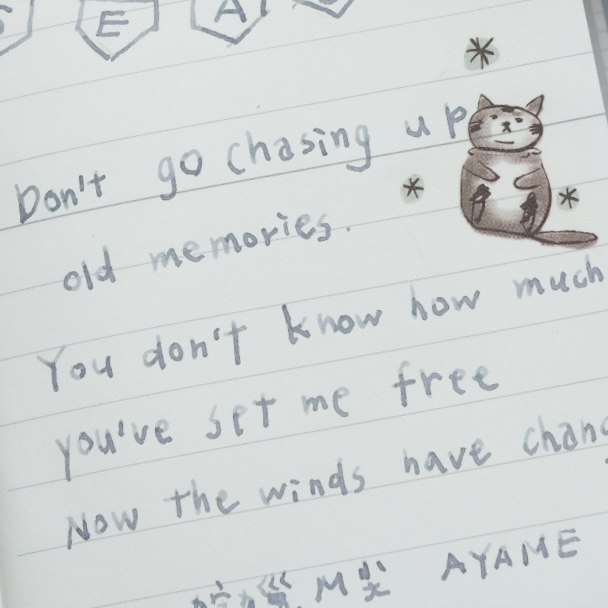 S E A
Don't go chasing up
old memories.
You don't know how much
you've set me free
Now the winds have chang
M AYAME